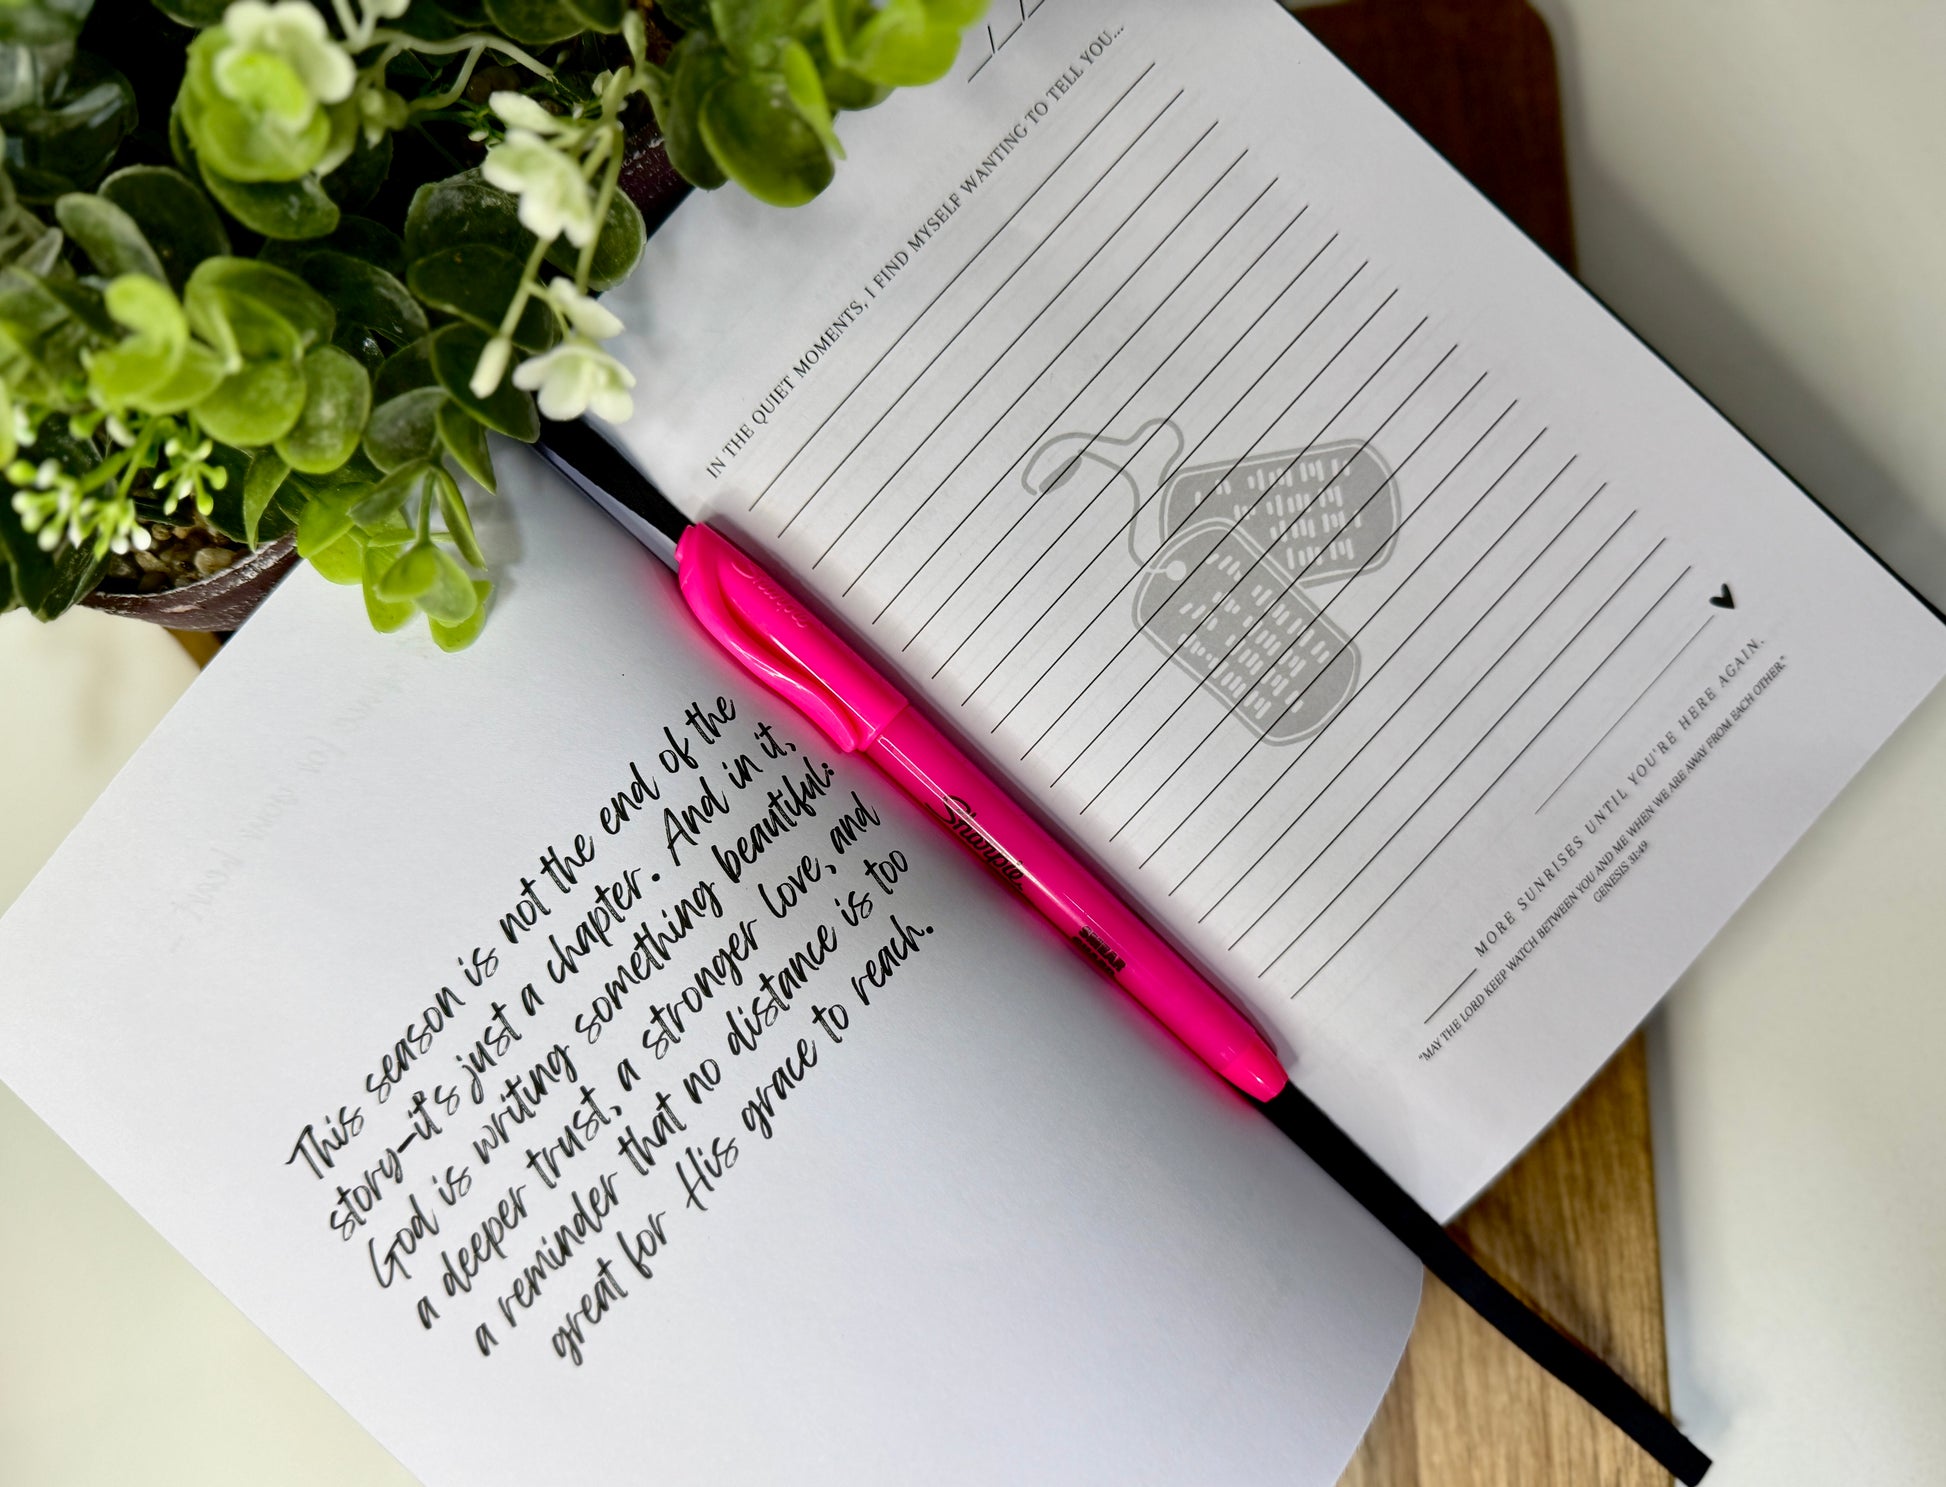 This season is not the end of the
story—it's just a chapter. And in it,
God is writing something beautiful:
a deeper trust, a stronger love, and
a reminder that no distance is too
great for His grace to reach.
IN THE QUIET MOMENTS, I FIND MYSELF WANTING TO TELL YOU...
MORE SUNRISES UNTIL YOU'RE HERE AGAIN.
"MAY THE LORD KEEP WATCH BETWEEN YOU AND ME WHEN WE ARE AWAY FROM EACH OTHER."
GENESIS 31:49
Sharpie
Sharpie
SMEAR